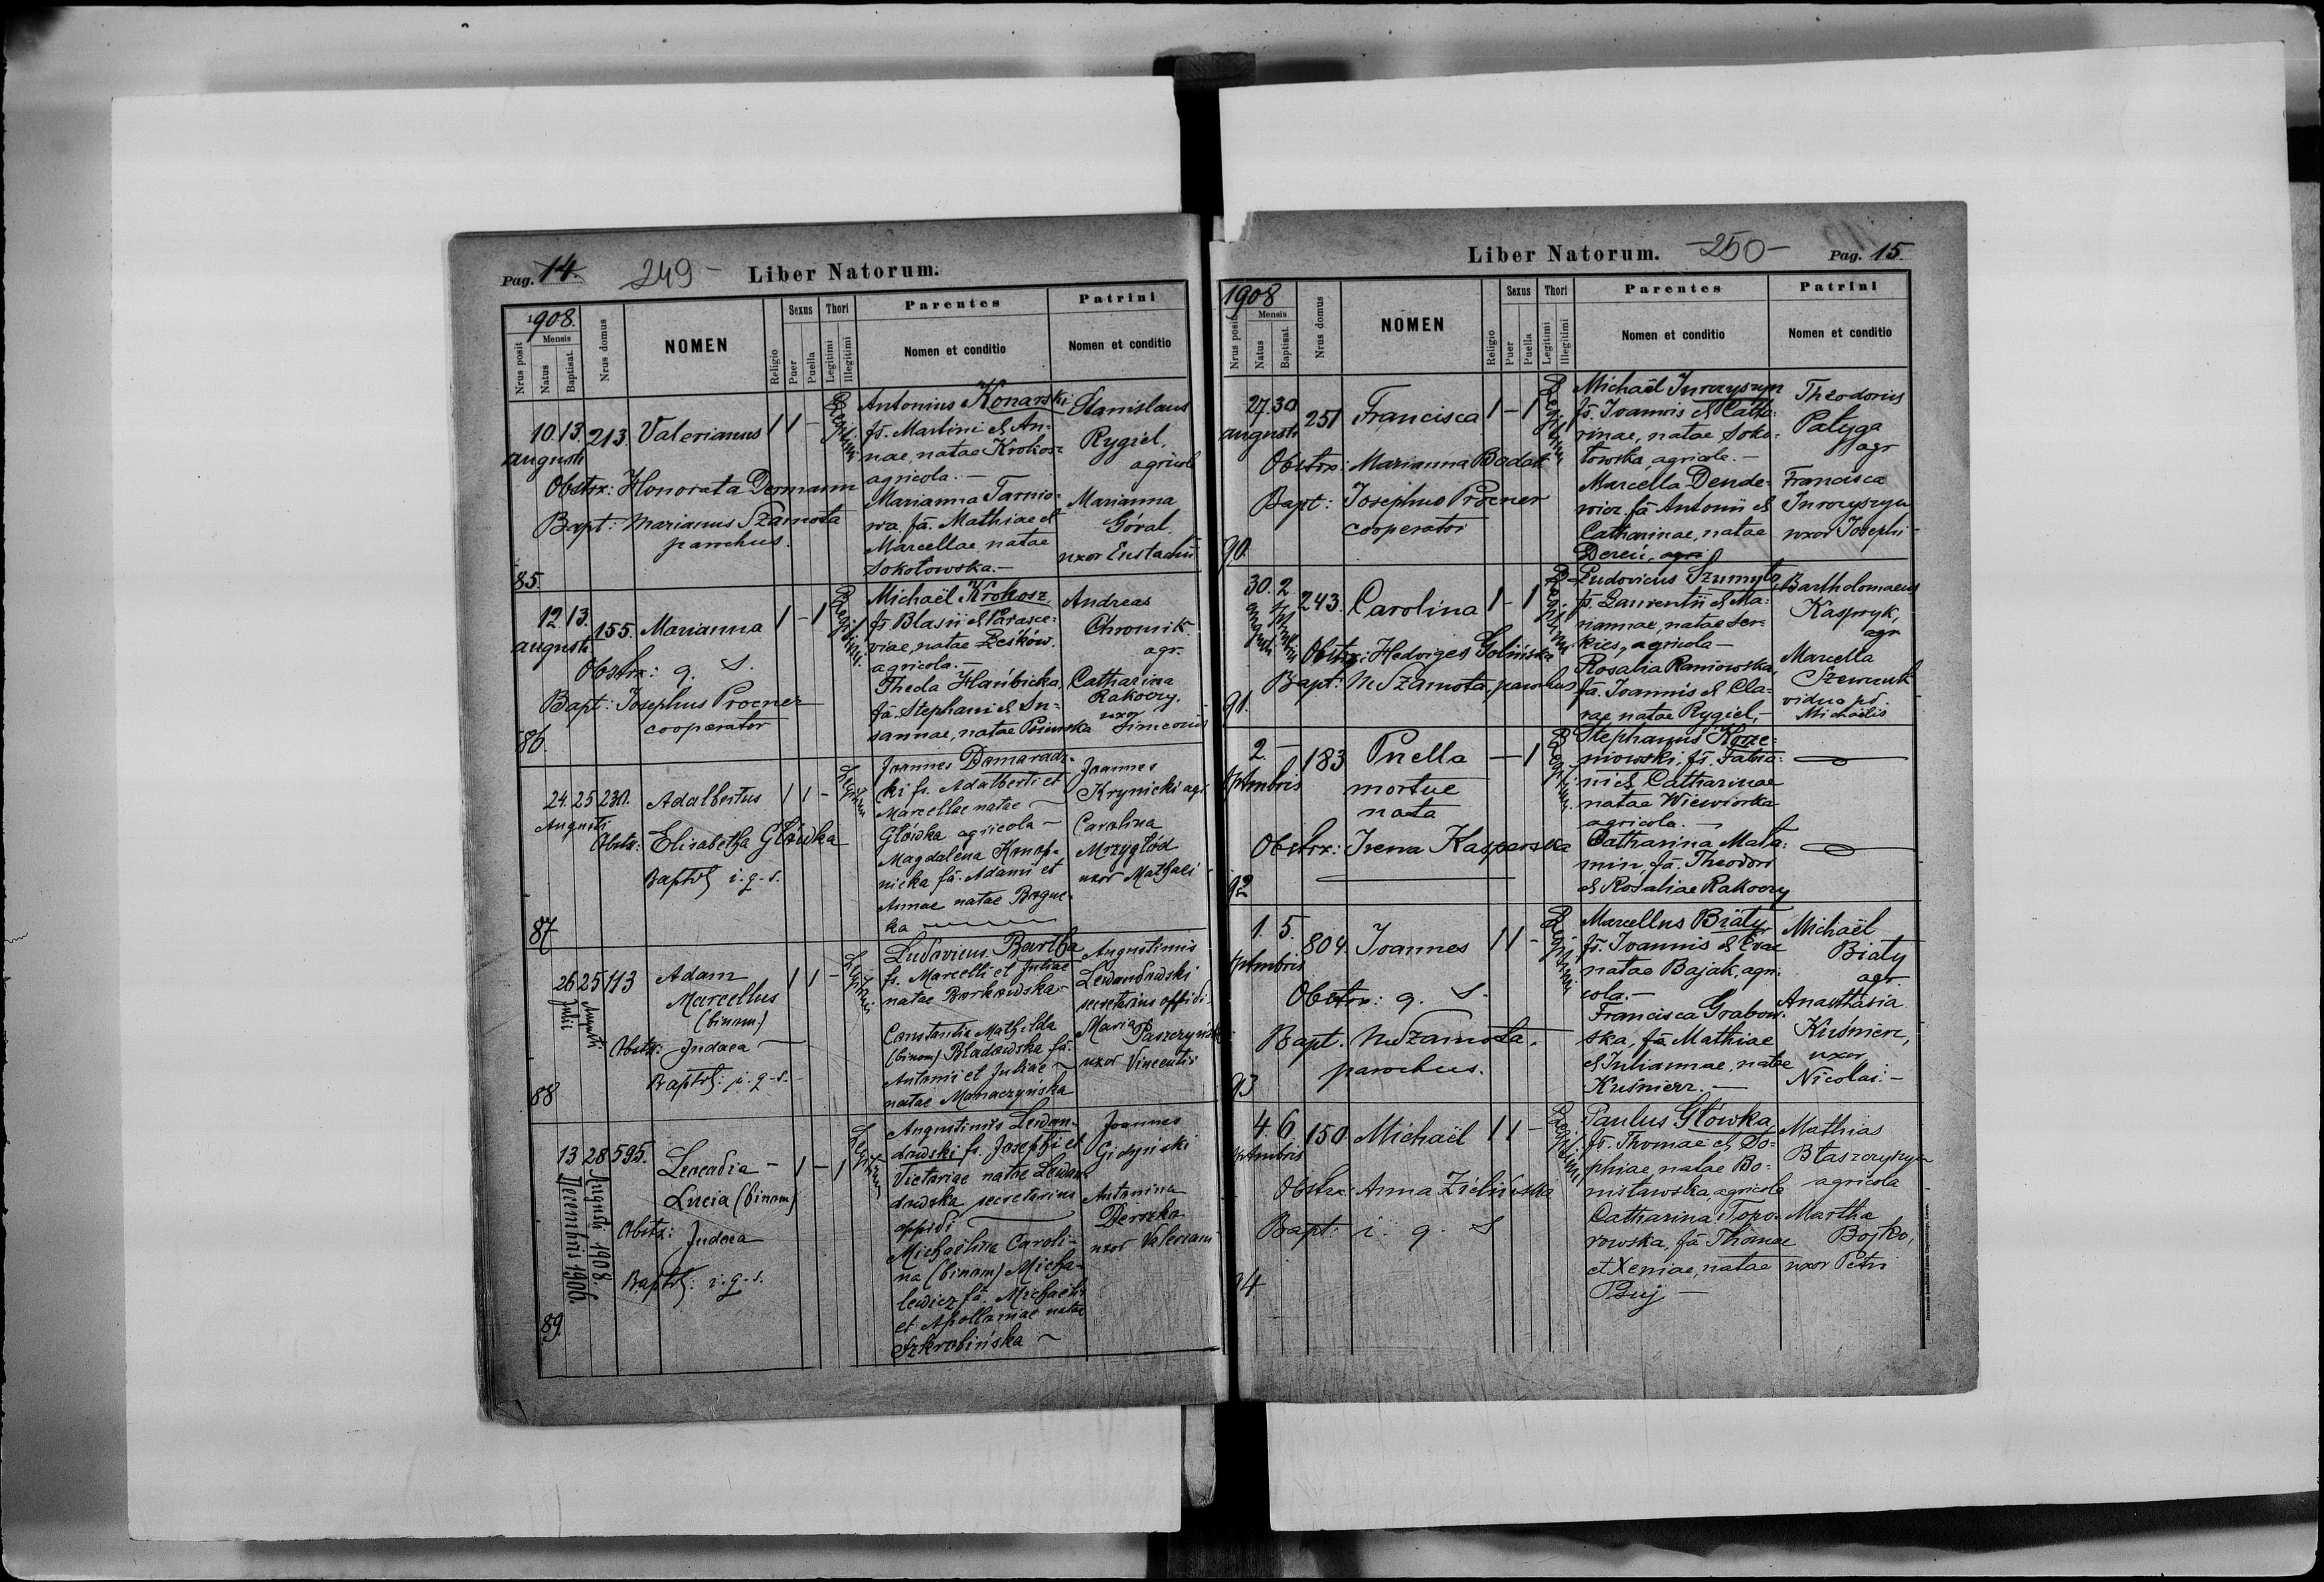 Pag. 14. 249- Liber Natorum.
1908.
Mensis
Nrus posit
Natus
Baptisat.
Nrus domus
NOMEN
Religio
Sexus
Puer
Puella
Thori
Legitimi
Illegitimi
Parentes
Nomen et conditio
Patrini
Nomen et conditio
85.
10. 13. 213. Valerianus 1 1 -
augusti
Obstrx: Honorata Dermann
Bapt: Marianus Szamota
parochus.
Legitimi
Antonius Konarski
fs. Martini & An-
nae, natae Krokosz
agricola. -
Marianna Tarnio-
wa, fa. Mathiae &
Marcellae, natae
Sokołowska. -
Stanislaus
Rygiel,
agricola
Marianna
Góral,
uxor Eustachii
86.
12 13. 155. Marianna 1 - 1
augusti.
Obstrx: q. S.
Bapt: Josephus Procner
cooperator
Legitimi
Michaël Krokosz,
fs. Blasii & Parasce-
viae, natae Leśków.
agricola. -
Theda Hańbicka,
fa. Stephani & Su-
sannae, natae
Andreas
Chromik.
agr.
Catharina
Rakoczy,
uxor
Simeonis
87
24. 25 230. Adalbertus 1 1 -
Augusti
Obstr: Elisabetha Główka
Baptds i. q. s.
Legitimi
Joannes Domaradz-
ki fs. Adalberti et
Marcellae natae
Główka agricola -
Magdalena Konop-
nicka fa. Adami et
Annae natae Bogus-
ka
Joannes
Krynicki agr.
Carolina
Mrzygłód
uxor Mathaei
88
26 25 113 Adam 1 1 -
Julii Augusti
Marcellus
(binom)
Obstr: Judaea
Baptds: i. q. s.
Legitimi
Ludovicus Bartha
fs. Marcelli et Juliae
natae Borkowska -
Constantia Mathilda
(binom) Bladowska fa.
Antonii et Juliae
natae Monaczyńska
Augustinus
Lewandowski
secretarius oppidi
Maria
uxor Vincentii
89.
13 28 595. Leocadia - 1 - 1
Decembris 1906. Augusti 1908.
Lucia (binom)
Obstr: Judaea
Baptds: i. q. s.
Legitimi
Augustinus Lewan-
dowski fs. Josephi et
Victoriae natae Lewan-
dowska secretarius
oppidi
Michaëlina Caroli-
na (binom) Micha-
lewicz fa. Michaelis
et Apolloniae natae
Szkrobińska
Joannes
Gidyński
Antonina
Derszka
uxor Valeriani
Liber Natorum. -250- Pag. 15
1908
Mensis
Nrus posit
Natus
Baptisat.
Nrus domus
NOMEN
Religio
Sexus
Puer
Puella
Thori
Legitimi
Illegitimi
Parentes
Nomen et conditio
Patrini
Nomen et conditio
90.
27. 30 251 Francisca 1 - 1
augusti
Obstrx: Marianna Badak
Bapt: Josephus Procner
cooperator
Legitimi
Michaël Juroczyszyn
fs. Joannis & Catha-
rinae, natae Soko-
łowska, agricola. -
Marcella Dende-
wicz, fa. Antonii &
Catharinae, natae
Dereń, agri
Theodorus
Patyga
agr
Francisca
Juroczyszyn
uxor Josephi -
91.
30. 2 243. Carolina 1 - 1
augusti
Obstrx: Hedviges Golińska
Bapt: M Szamota, parochus
Legitimi
Ludovicus Szumyło,
fs. Laurentii & Ma-
riannae, natae Ser-
kies, agricola -
Rosalia Raniowska,
fa. Joannis & Cla-
rae natae Rygiel, -
Bartholomaeus
Kaspryk,
agr
Marcella
Szewczuk
vidua p.
Michaëlis
92
2. - 183 Puella - 1
Septembris
mortue
nata
Obstrx: Irena Kasperska
Legitimi
Stephanus Korze-
niowski, fs. Fabia-
ni & Catharinae
natae Wiewiorka
agricola. -
Catharina Mała-
min, fa. Theodori
& Rosaliae Rakoczy
93
1. 5. 804. Joannes 1 1 -
Septembris
Obstrx: q. S.
Bapt. M Szamota.
parochus.
Legitimi
Marcellus Biały
fs. Joannis & Evae
natae Bajak, agri-
cola. -
Francisca Grabow-
ska, fa Mathiae
& Juliannae, natae
Kuśnierz. -
Michaël
Biały
agr.
Anasthasia
Kuśnierz,
uxor
Nicolai. -
94
4. 6. 150. Michaël 1 1 -
Septembris
Obstrx: Anna Zielińska
Bapt: i. q. S
Legitimi
Paulus Główka
fs. Thomae & So-
phiae, natae Bo-
nisławska, agricola
Catharina Topo-
rowska, fa Thomae
et Xeniae, natae
Buj -
Mathias
Błaszczyszyn
agricola
Martha
Bojko,
uxor Petri